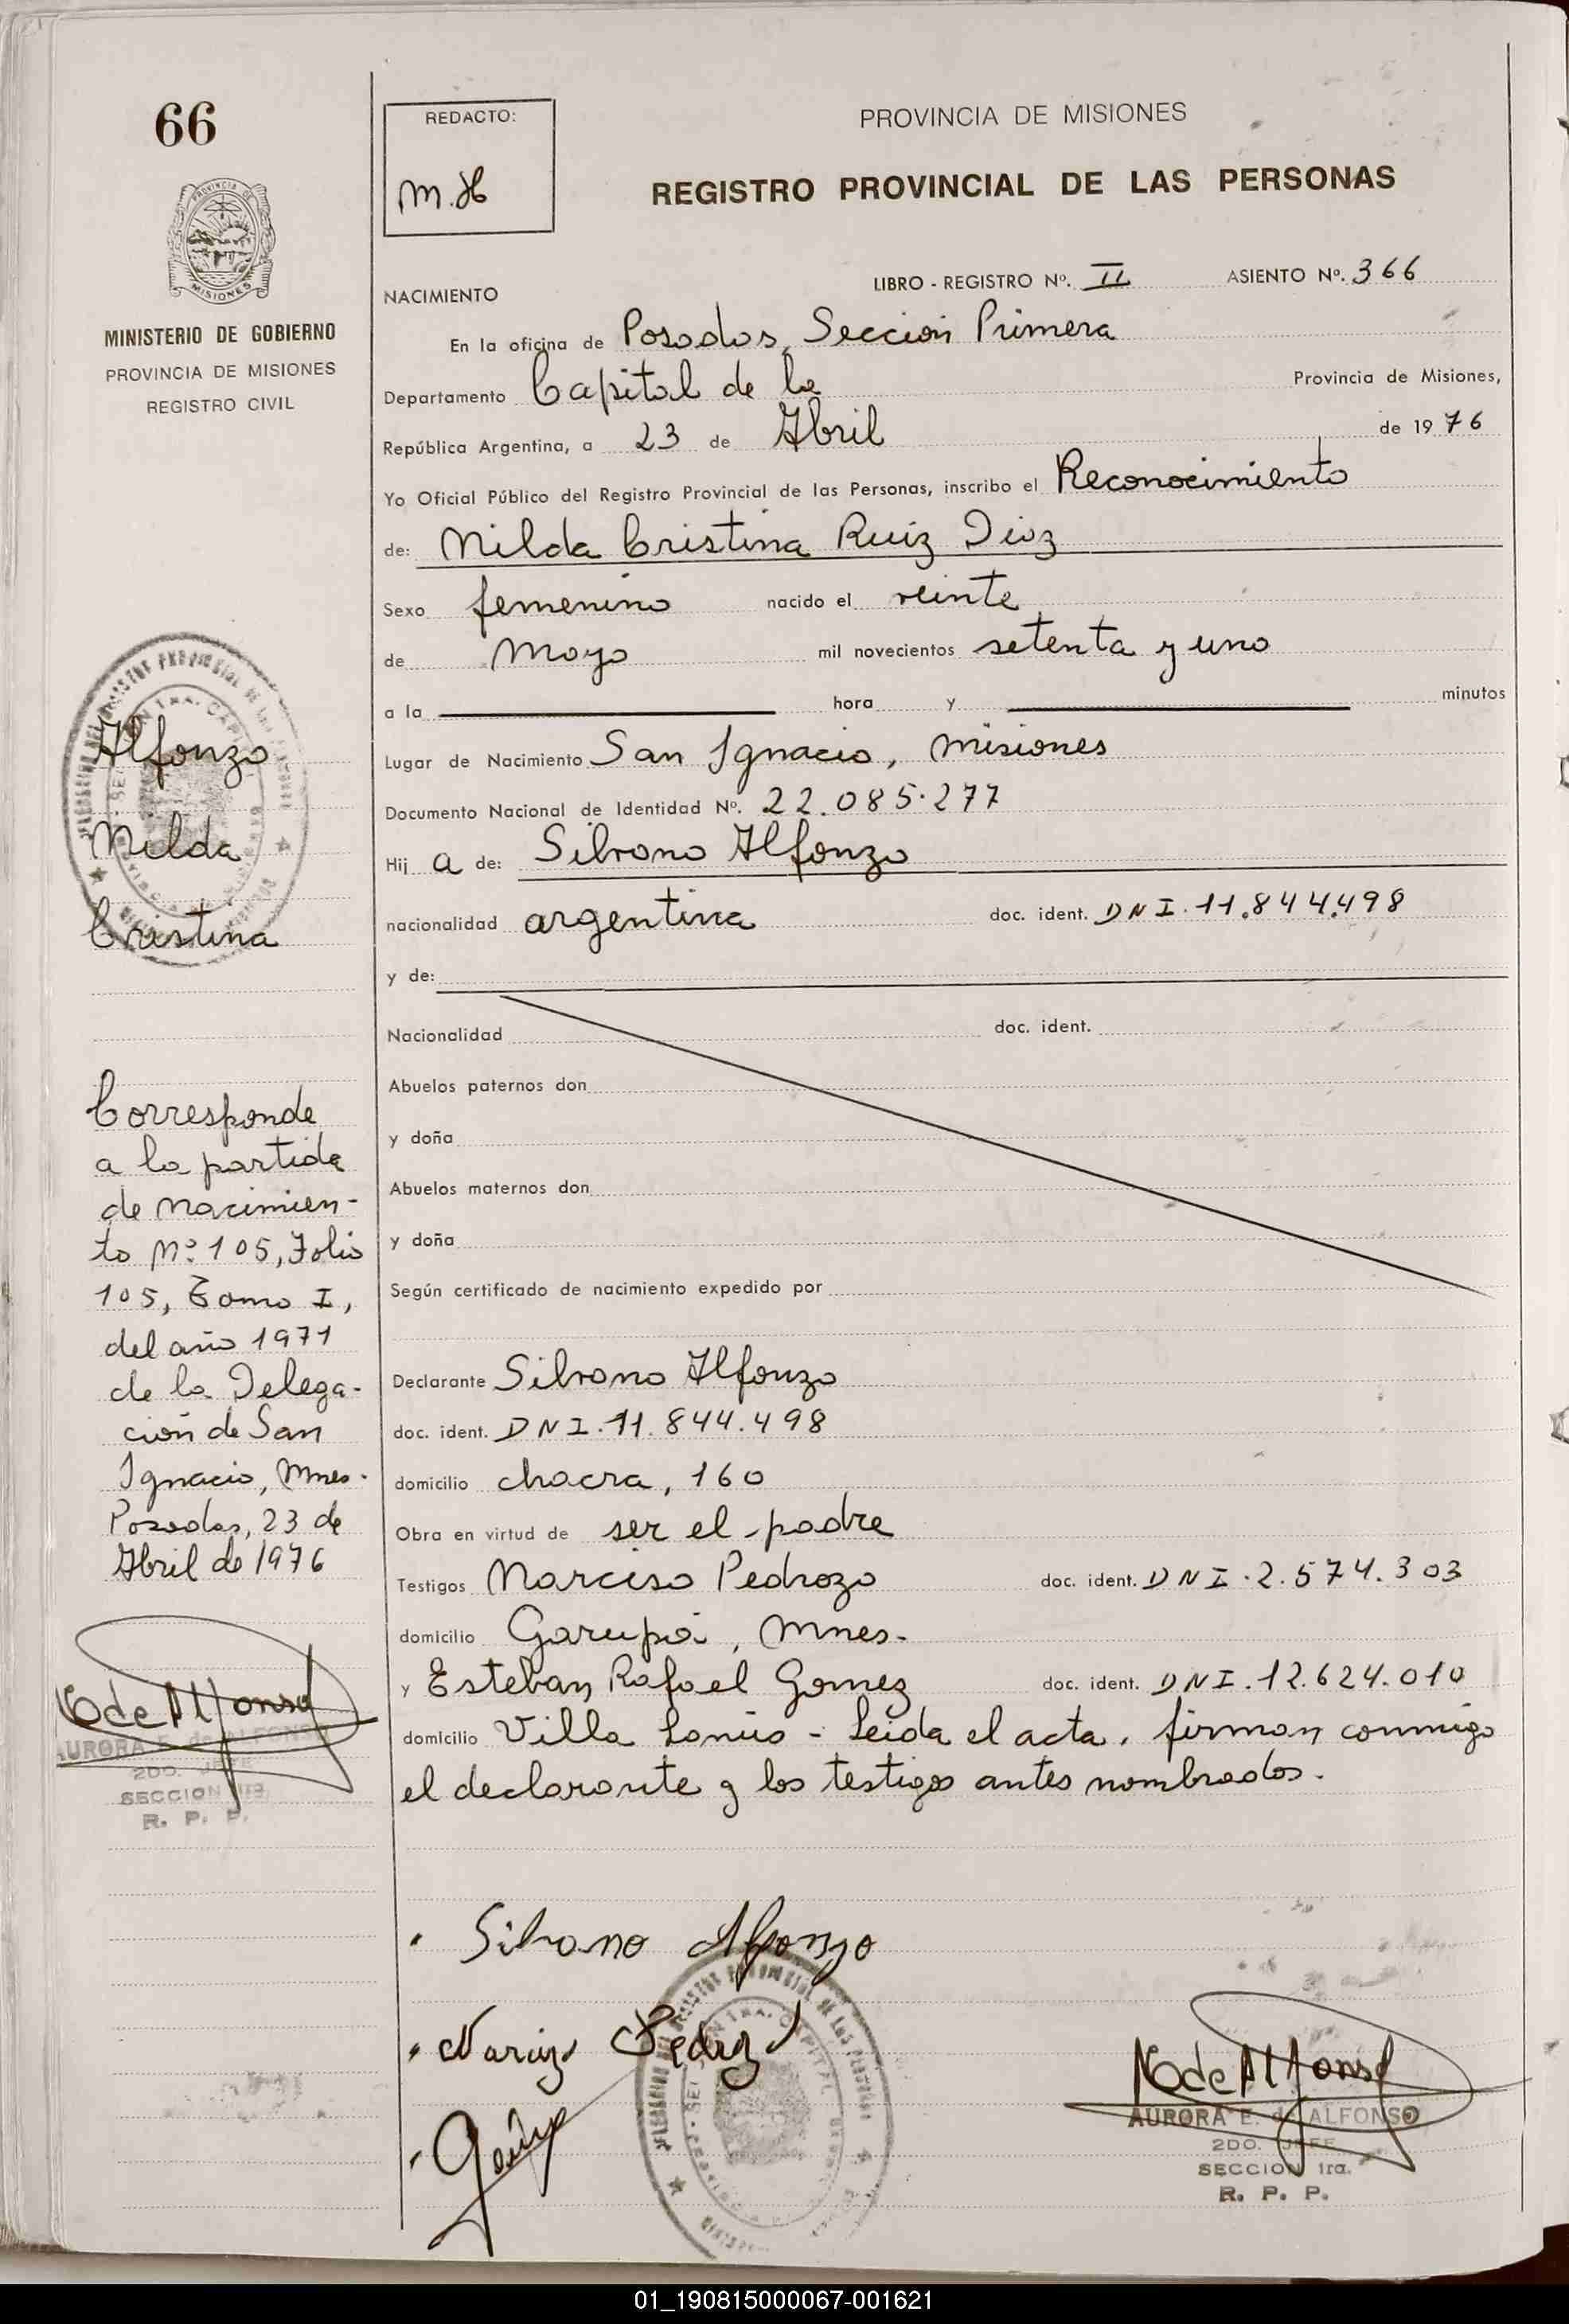 66
PROVINCIA DE
MISIONES
MINISTERIO DE GOBIERNO
PROVINCIA DE MISIONES
REGISTRO CIVIL
Alfonzo
Nilda
Cristina
Corresponde
a la partida
de nacimien-
to Nº 105, Folio
105, Tomo I,
del año 1971
de la Delega-
ción de San
Ignacio, Mnes.
Posadas, 23 de
Abril de 1976
AURORA E. de ALFONSO
2DO. JEFE
SECCION 1ra.
R. P. P.
REDACTO:
M.H
PROVINCIA DE MISIONES
REGISTRO PROVINCIAL DE LAS PERSONAS
NACIMIENTO LIBRO - REGISTRO Nº. II ASIENTO Nº. 366
En la oficina de Posadas, Sección Primera
Departamento Capital de la Provincia de Misiones,
República Argentina, a 23 de Abril de 1976
Yo Oficial Público del Registro Provincial de las Personas, inscribo el Reconocimiento
de: Nilda Cristina Ruiz Diaz
Sexo femenino nacido el veinte
de Mayo mil novecientos setenta y uno
a la hora y minutos
Lugar de Nacimiento San Ignacio, Misiones
Documento Nacional de Identidad Nº. 22.085.277
Hij a de: Silvano Alfonzo
nacionalidad argentina doc. ident. DNI. 11.844.498
y de:
Nacionalidad doc. ident.
Abuelos paternos don
y doña
Abuelos maternos don
y doña
Según certificado de nacimiento expedido por
Declarante Silvano Alfonzo
doc. ident. DNI. 11.844.498
domicilio chacra, 160
Obra en virtud de ser el padre
Testigos Narciso Pedrozo doc. ident. DNI. 2.574.303
domicilio Garupá, Mnes.
y Esteban Rafael Gomez doc. ident. DNI. 12.624.010
domicilio Villa Lanús - Leida el acta, firman conmigo
el declarante y los testigos antes nombrados.
Silvano Alfonzo
AURORA E. de ALFONSO
2DO. JEFE
SECCION 1ra.
R. P. P.
01_190815000067-001621